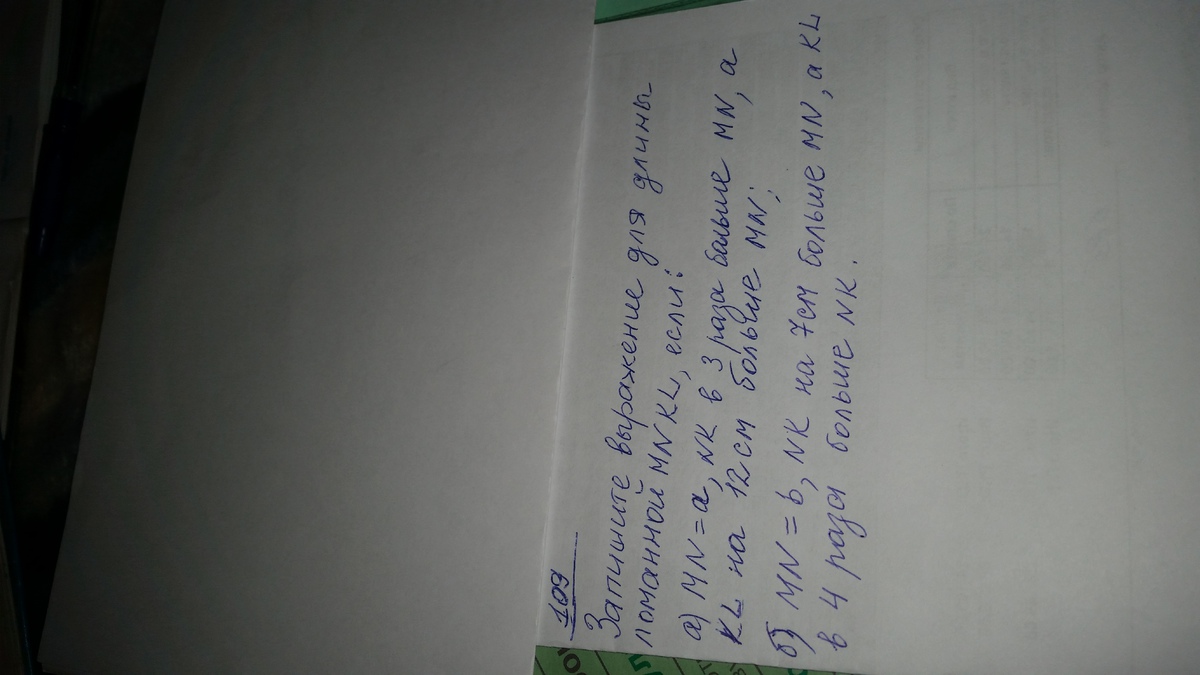 109
Запишите выражение для длины
ломанной MNKL, если:
а) MN = a, NK в 3 раза больше MN, а
KL на 12 см больше MN;
б) MN = b, NK на 7 см больше MN, а KL
в 4 раза больше NK.